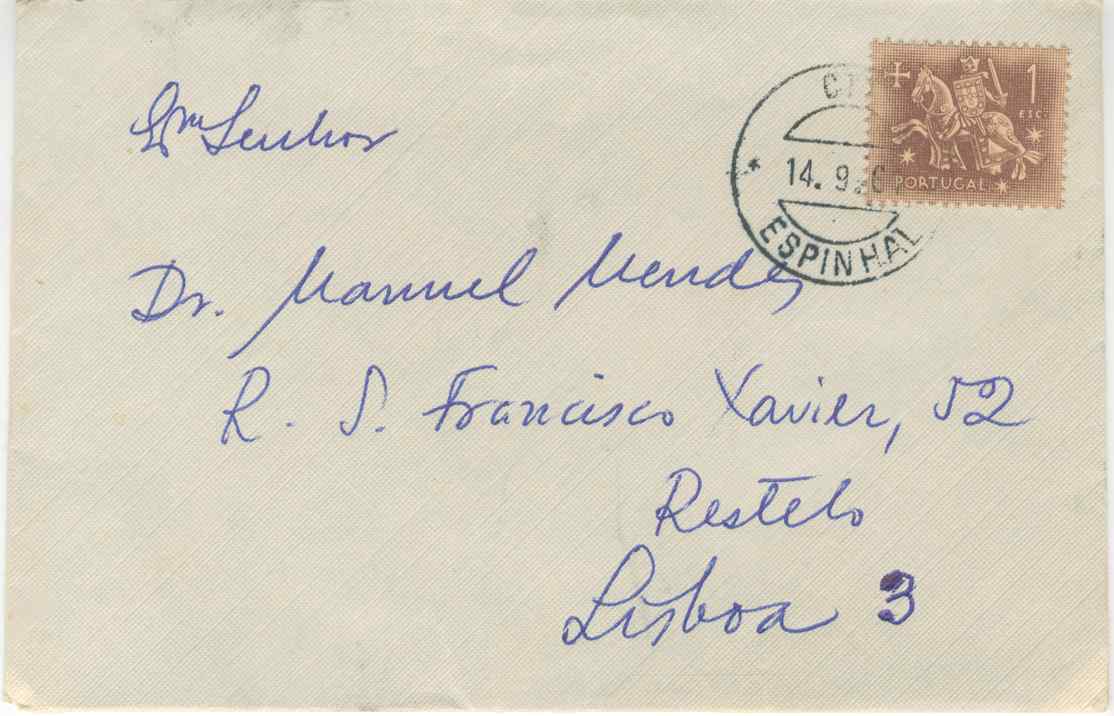 Exmo Senhor
Dr. Manuel Mendes
R. S. Francisco Xavier, 52
Restelo
Lisboa 3
1
ESC.
PORTUGAL
14. 9.
ESPINHAL